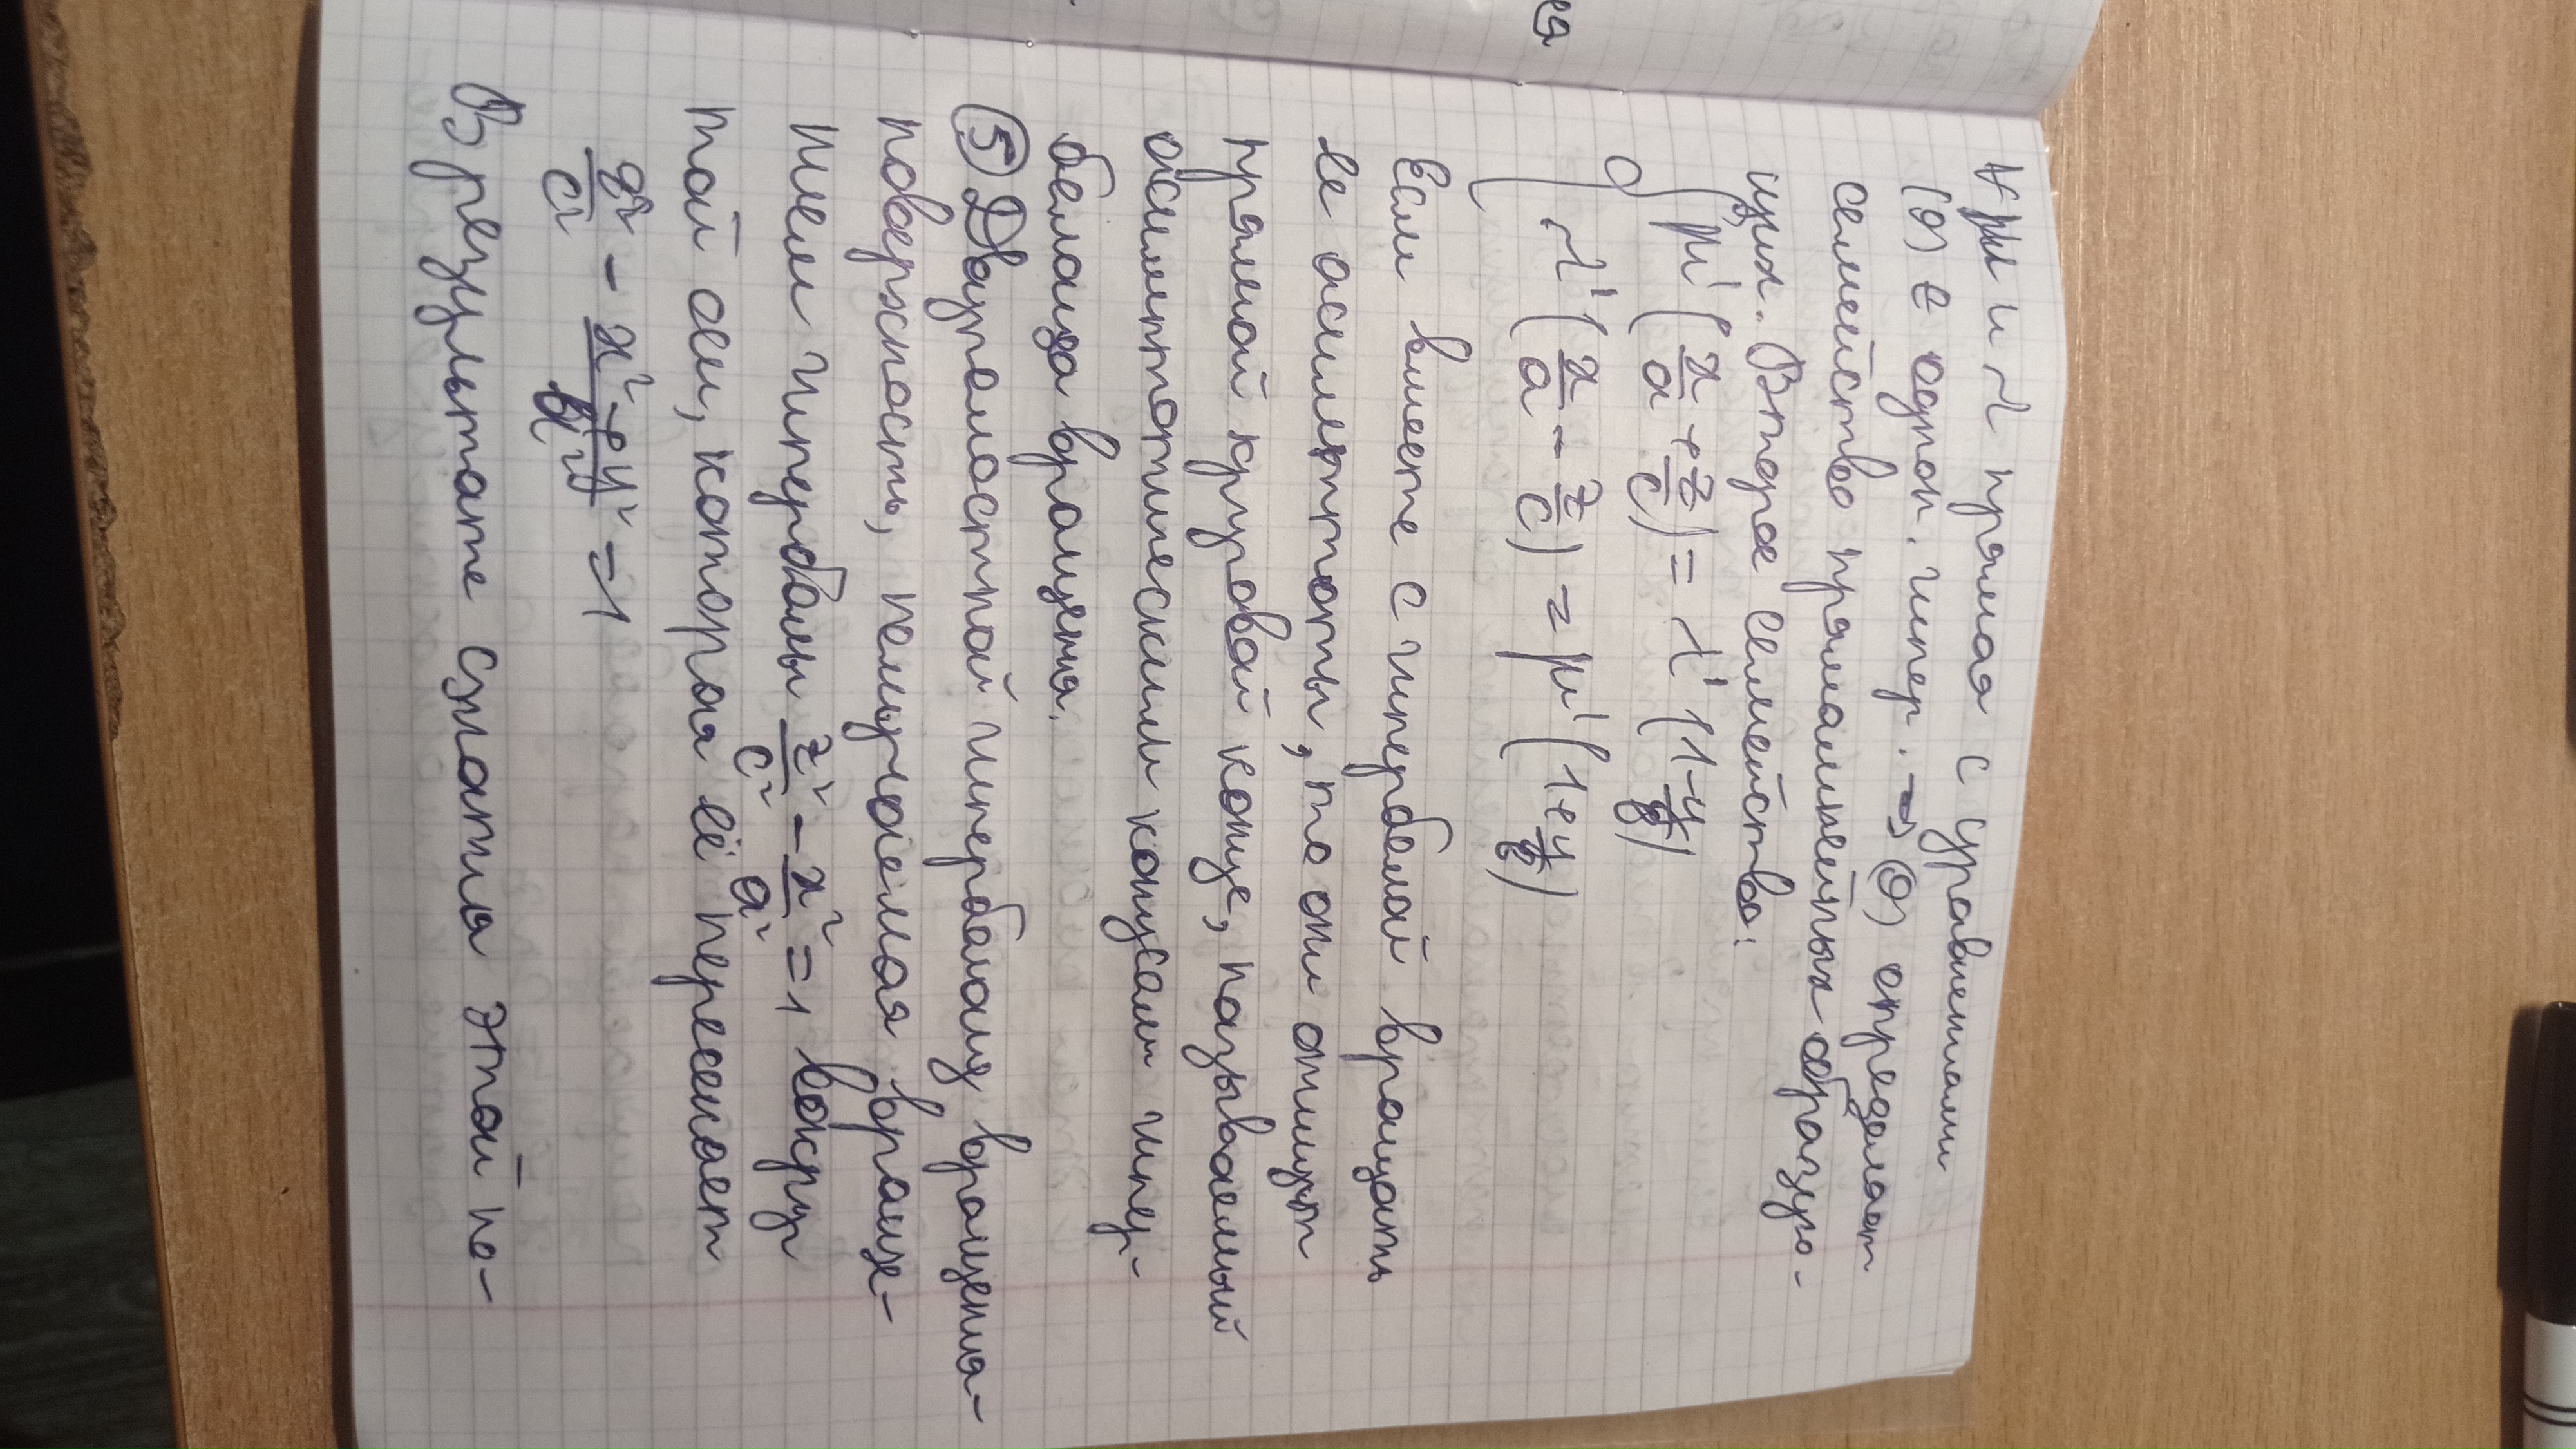 ея
∀ μ и λ прямая с уравнениями
(9) ∈ однон. гипер. ⇒ (9) определяет
семейство прямолинейных образую-
щих. Второе семейство:
μ'(x/a + z/c) = λ'(1 - y/b)
λ'(x/a - z/c) = μ'(1 + y/b)
Если вместе с гиперболой вращать
ее асимптоты, то они опишут
прямой круговой конус, называемый
асимптотическим конусом гипер-
болоида вращения.
⑤ Двуполостной гиперболоид вращения -
поверхность, получаемая враще-
нием гиперболы z²/c² - x²/a² = 1 вокруг
той оси, которая её пересекает
z²/c² - x² + y²/a² = 1
В результате сжатия этой по-